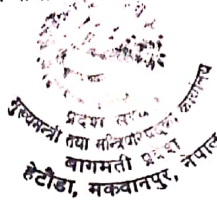 प्रदेश
मुख्यमन्त्री तथा मन्त्रिपरिषद्को कार्यालय
बागमती प्रदेश
हेटौंडा, मकवानपुर, नेपाल